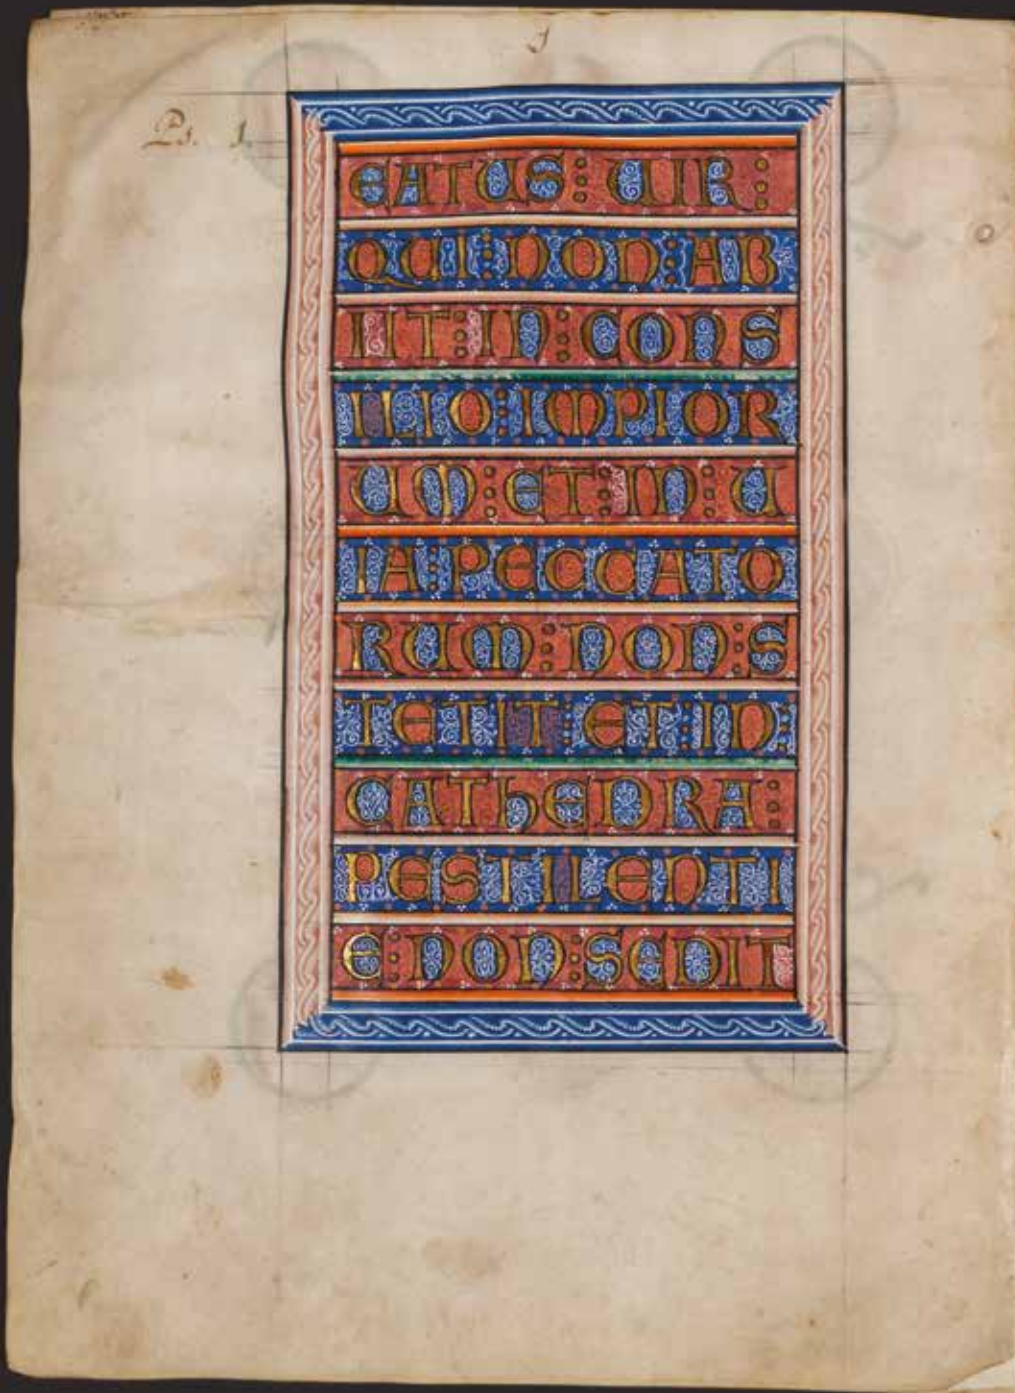 Ps. 1.
EATUS : UIR :
QUI : NON : AB
IIT : IN : CONS
ILIO : IMPIOR
UM : ET : IN : U
IA : PECCATO
RUM : NON : S
TETIT : ET : IN :
CATHEDRA :
PESTILENTI
E : NON : SEDIT